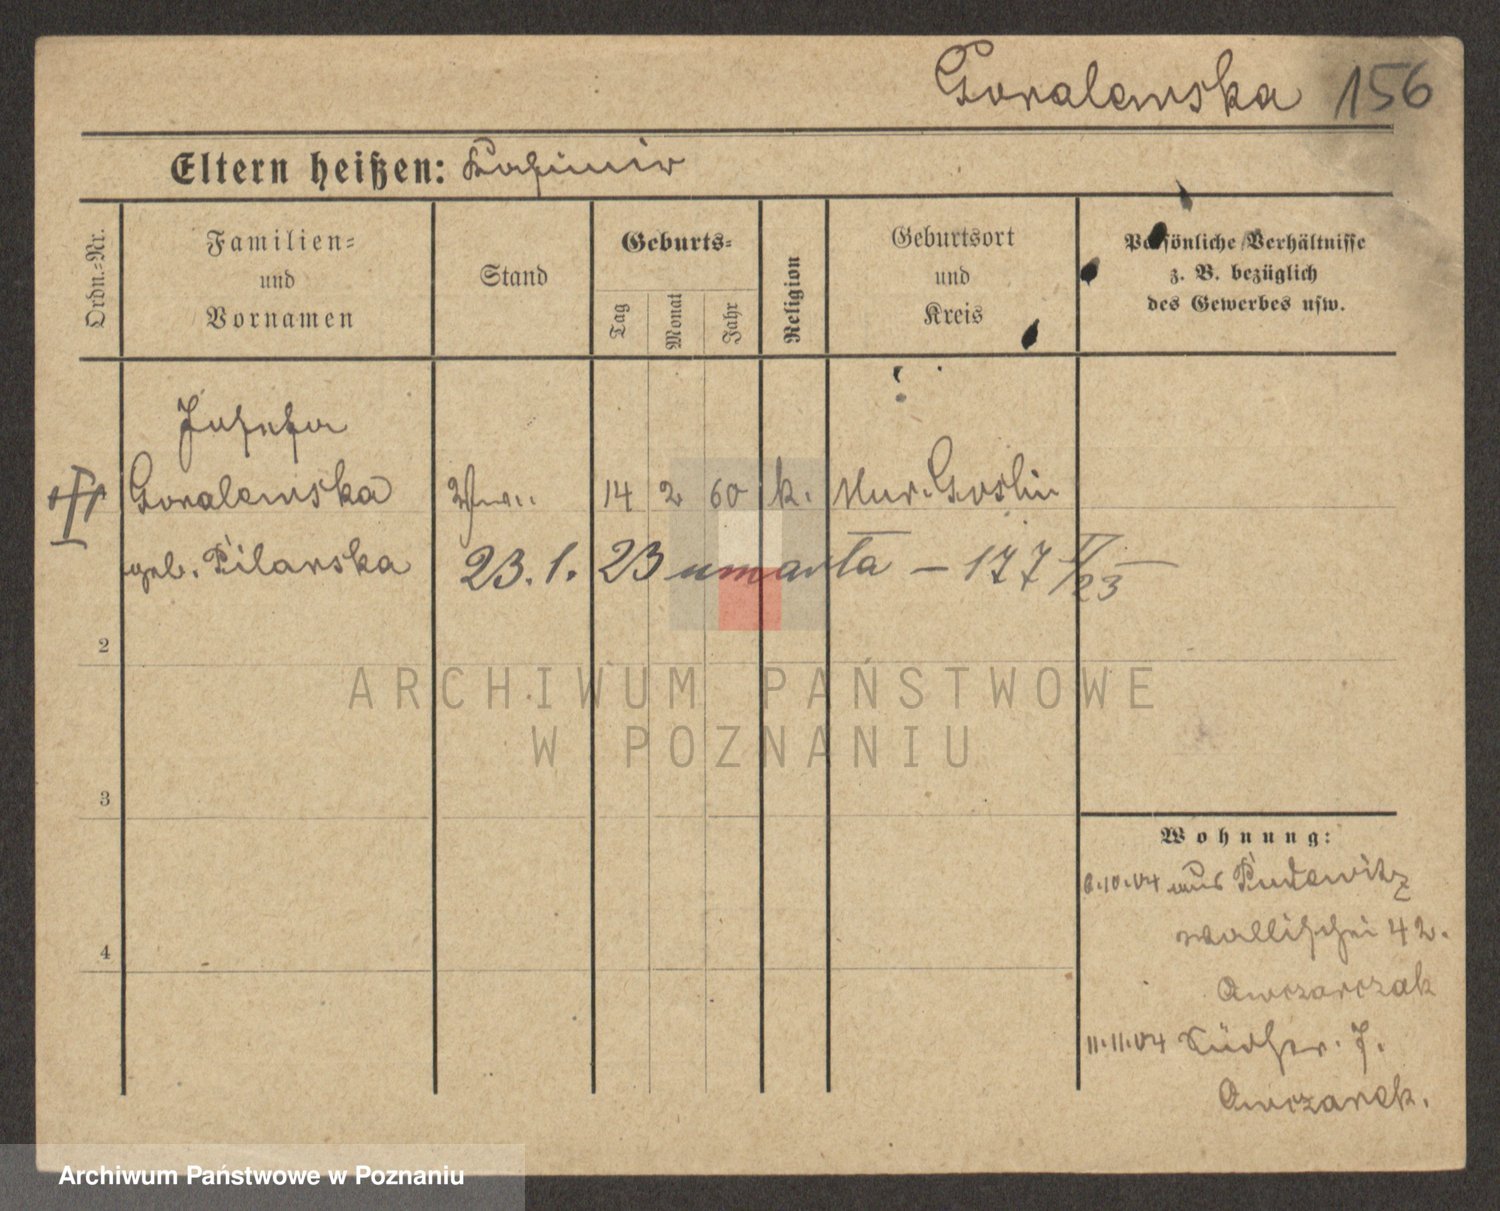 Goralewska 156
Eltern heißen: Kasimir
Ordn.-Nr.
Familien-
und
Vornamen
Stand
Geburts-
Tag
Monat
Jahr
Religion
Geburtsort
und
Kreis
Persönliche Verhältnisse
z. B. bezüglich
des Gewerbes usw.
Josefa
Goralewska Wwe. 14 2 60 k. Mur. Goslin
geb. Pilarska 23.1.23 umarła – 177 I/23
2
3
4
Wohnung:
6.10.04 aus Pudewitz
Wallischei 42.
Owczarczak
11.11.04 7.
Owczarek.
ARCHIWUM PAŃSTWOWE
W POZNANIU
Archiwum Państwowe w Poznaniu